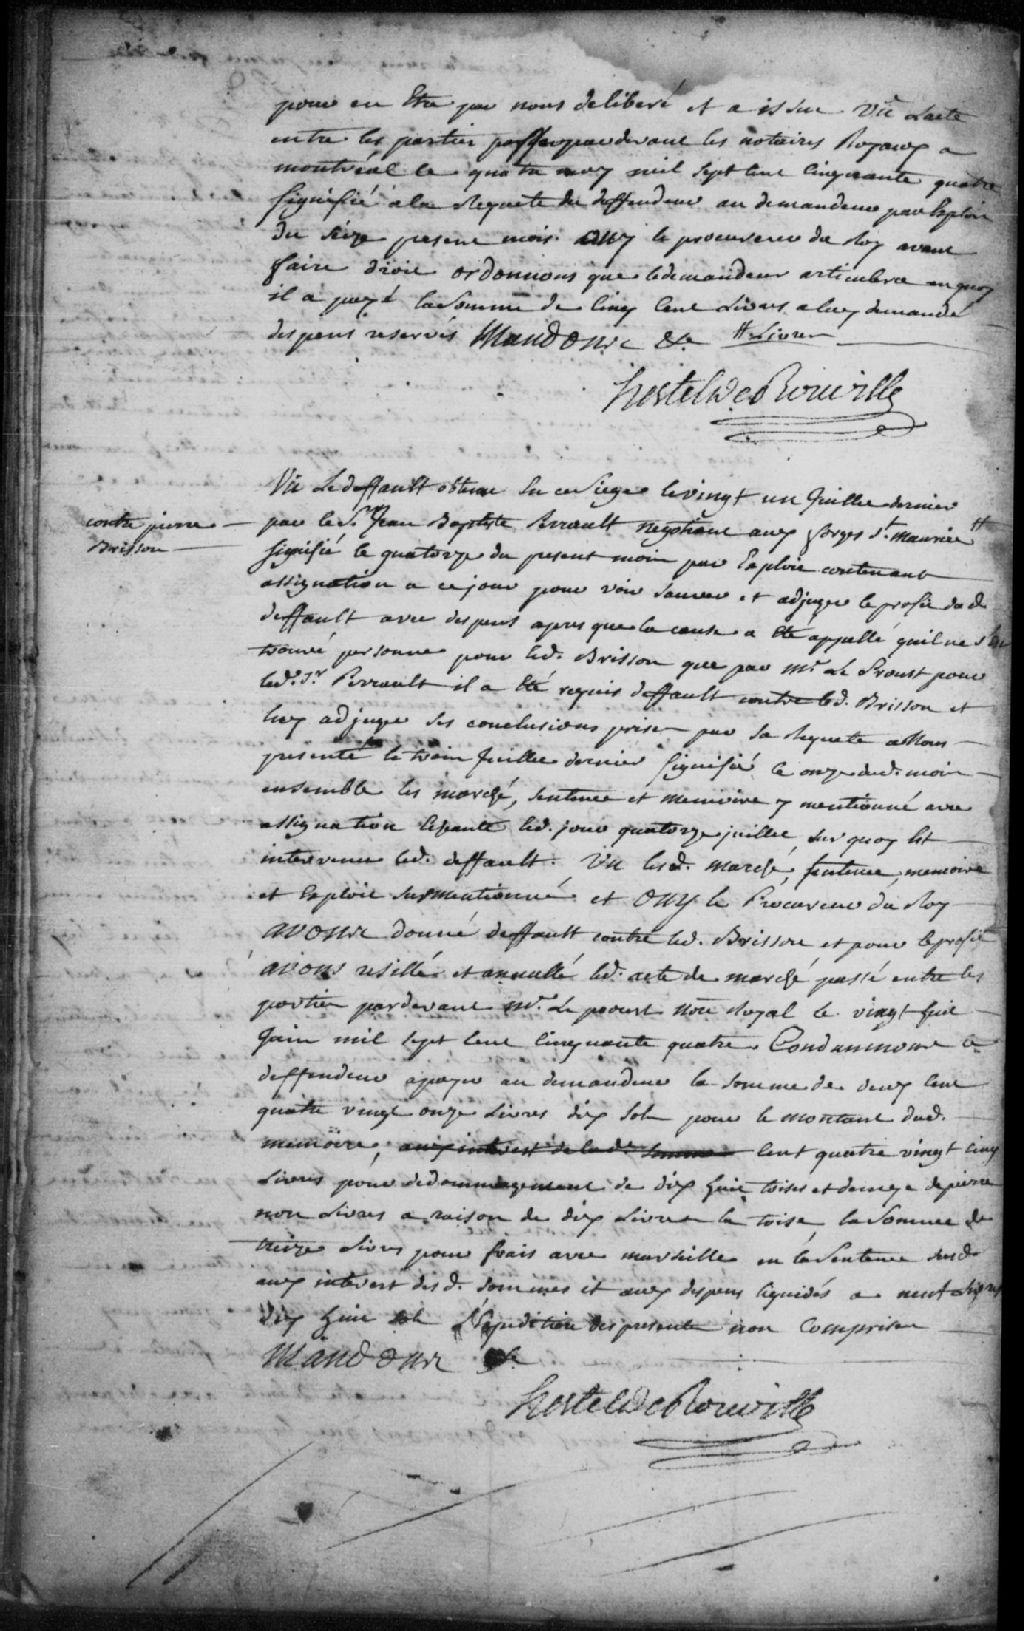 pour en Etre par nous deliberé et a issue Vû Lacte
entre les parties passé pardevant les notaires Royaux a
montréal le quatre may mil sept cent cinquante quatre
signifié a la Requete du deffendeur au demandeur par Exploit
du seize present mois. ouy le procureur du Roy avant
faire droit ordonnons que le demandeur articulera en quoy
il a payé la somme de cinq cent Livres a luy demandé
despens reservés Mandons &c. # Livres
hertel de Rouville
Vu Le deffault obtenu en ce siege le vingt un Juillet dernier
contre pierre
Brisson
par le Sr. Jean Baptiste Perrault negotiant aux forges St. Maurice #
signifié le quatorze du present mois par Exploit contenant
assignation a ce jour pour voir sauver et adjuger le profit dud.
deffault avec despens apres que la cause a été appellé qu'il ne s'est
trouvé personne pour led. Brisson que par Me. Le Proust pour
led. Sr. Perrault il a été requis deffault contre led. Brisson et
luy adjuger ses conclusions prises par sa Requete a Nous
presenté le trois Juillet dernier signifié le onze dud. mois
ensemble les marché, sentence et memoire y mentionné avec
assignation led. jour quatorze juillet, sur quoy est
intervenu led. deffault. Vu lesd. marché, sentence, memoire
et Exploit susmentionné et ouy le Procureur du Roy
avons donné deffault contre led. Brisson et pour le profit
avons resillé et annullé led. acte de marché passé entre les
parties pardevant Me. Le proust Nore Royal le vingt huit
Juin mil sept cent cinquante quatre. Condamnons le
deffendeur a payer au demandeur la somme de deux cent
quatre vingt onze Livres dix sols pour le montant dud.
memoire, aux interest de lad. somme cent quatre vingt cinq
Livres pour dedommagement de dix huit toises et demye de pierre
non Livrés a raison de dix Livres la toise, la somme de
treize Livres pour frais avec marseille en la sentence susd.
aux interest desd. sommes et aux despens liquidés a neuf Livres
dix huit sols L'expedition des presentes non comprises
Mandons &c.
hertel de Rouville